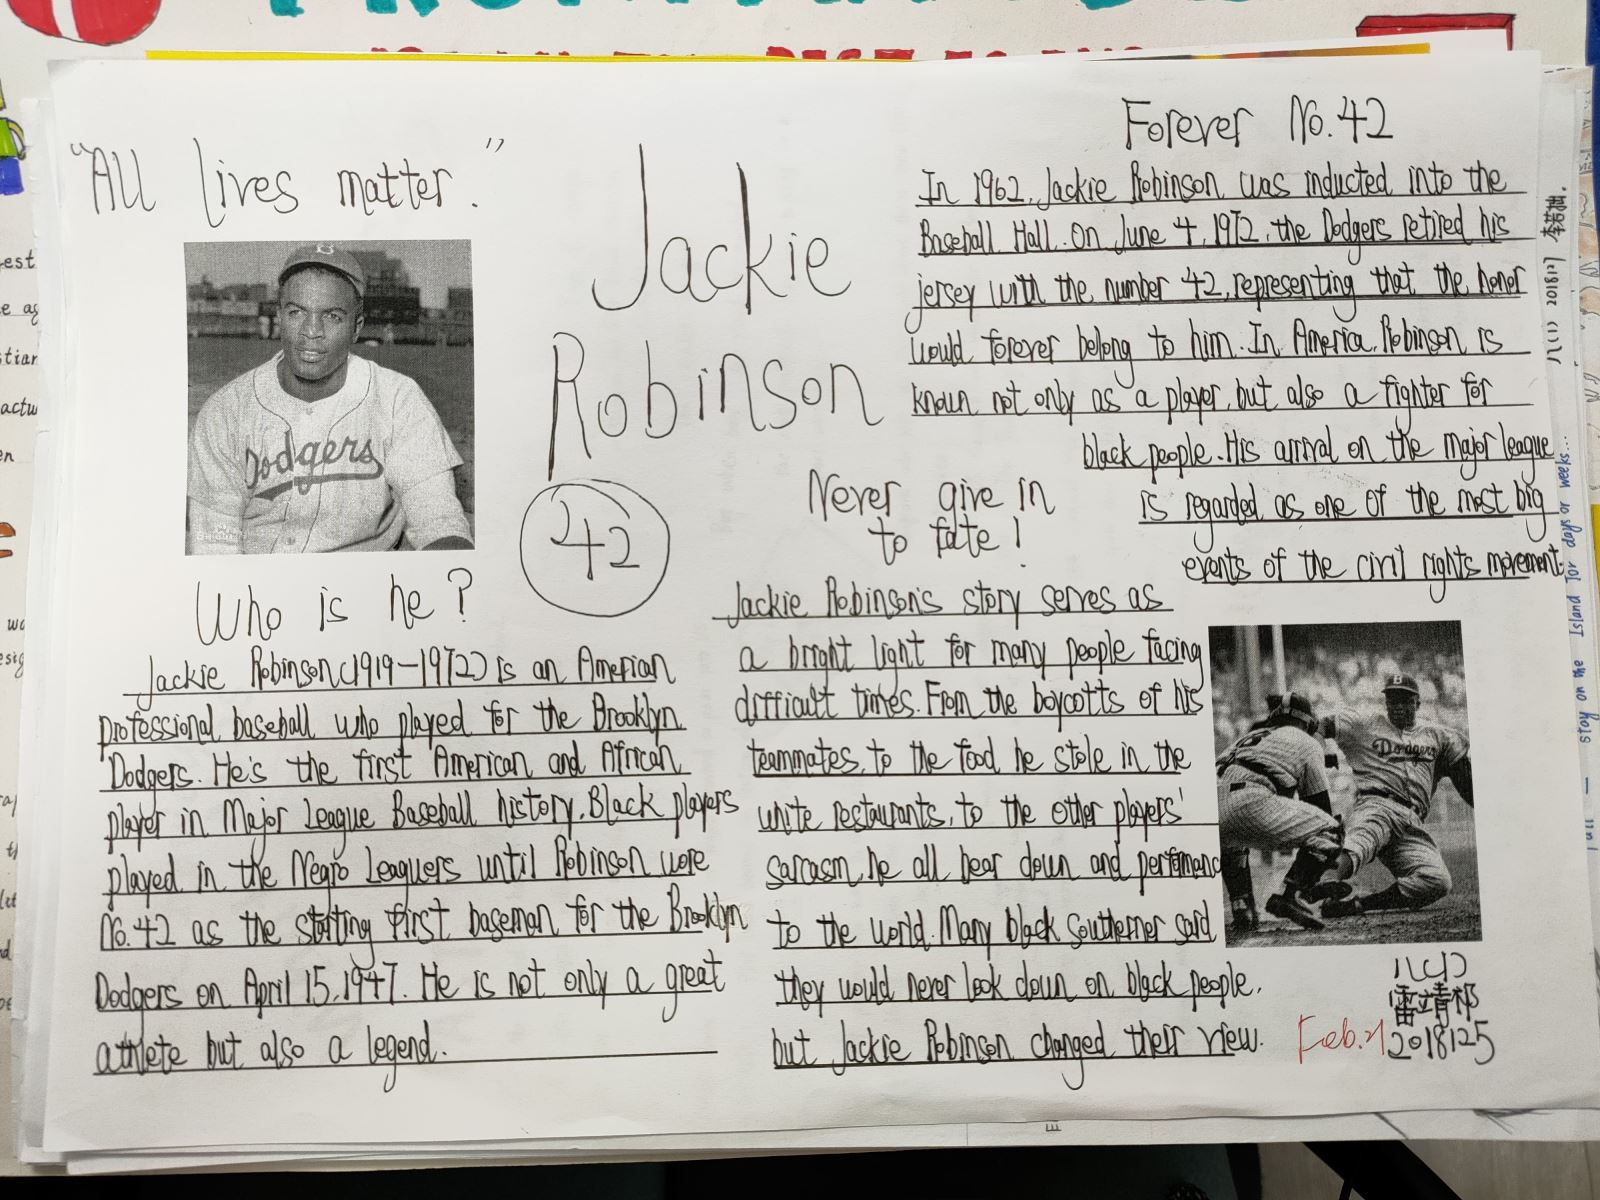 "All lives matter."
Dodgers
Who is he?
Jackie Robinson(1919-1972) is an Amerian
professional baseball who played for the Brooklyn
Dodgers. He's the first American and African
player in Major League Baseball history. Black players
played in the Negro Leaguers until Robinson wore
No.42 as the starting first baseman for the Brooklyn
Dodgers on April 15,1947. He is not only a great
athlete but also a legend.
Jackie
Robinson
42
Forever No.42
In 1962, Jackie Robinson was inducted into the
Baseball Hall. On June 4, 1972, the Dodgers retired his
jersey with the number 42, representing that the honor
would forever belong to him. In America, Robinson is
known not only as a player, but also a fighter for
black people. His arrival on the major league
is regarded as one of the most big
events of the civil rights movement.
Never give in
to fate!
Jackie Robinson's story serves as
a bright light for many people facing
difficult times. From the boycotts of his
teammates, to the food he stole in the
white restaurants, to the other players'
sarcasm, he all bear down and
to the world. Many black southerner said
they would never look down on black people,
but Jackie Robinson changed their view.
Dodgers
雷靖祁
2018125
Feb.21
stay on the Island for days or weeks...